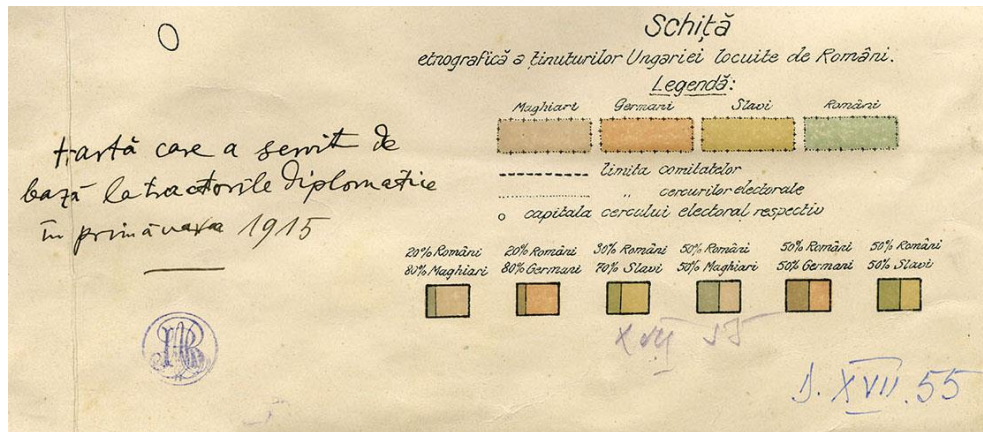 Schiță
etnografică a ținuturilor Ungariei locuite de Români.
Legendă:
Maghiari Germani Slavi Români
limita comitatelor
„ cercurilor electorale
o capitala cercului electoral respectiv
20% Români 20% Români 30% Români 50% Români 50% Români 50% Români
80% Maghiari 80% Germani 70% Slavi 50% Maghiari 50% Germani 50% Slavi
hartă care a servit de
bază la tractările diplomatice
în primăvara 1915
XVII 55
D. XVII. 55